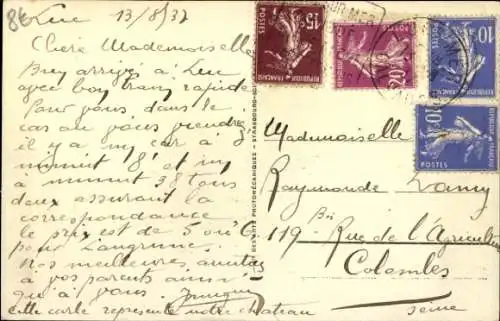 8€
Luc 13/8/37
Chère Mademoiselle
Bien arrivé à Luc
avec bon train rapide
Pour vous dans le
cas ou vous viendriez
il y a un car à
minuit 8' et un
à minuit 38 tous
deux assurant la
correspondance
le prix est de 5 ou 6
pour Langrune
Nos meilleures amitiés
à vos parents ainsi
qu'à vous.
cette carte represente notre chateau
STRASBOURG
15c
POSTES
REPUBLIQUE FRANÇAISE
20c
POSTES
REPUBLIQUE FRANÇAISE
10c
POSTES
REPUBLIQUE FRANÇAISE
10c
POSTES
Mademoiselle
Raymonde
119 Bis Rue de l'Agriculture
Colombes
Seine